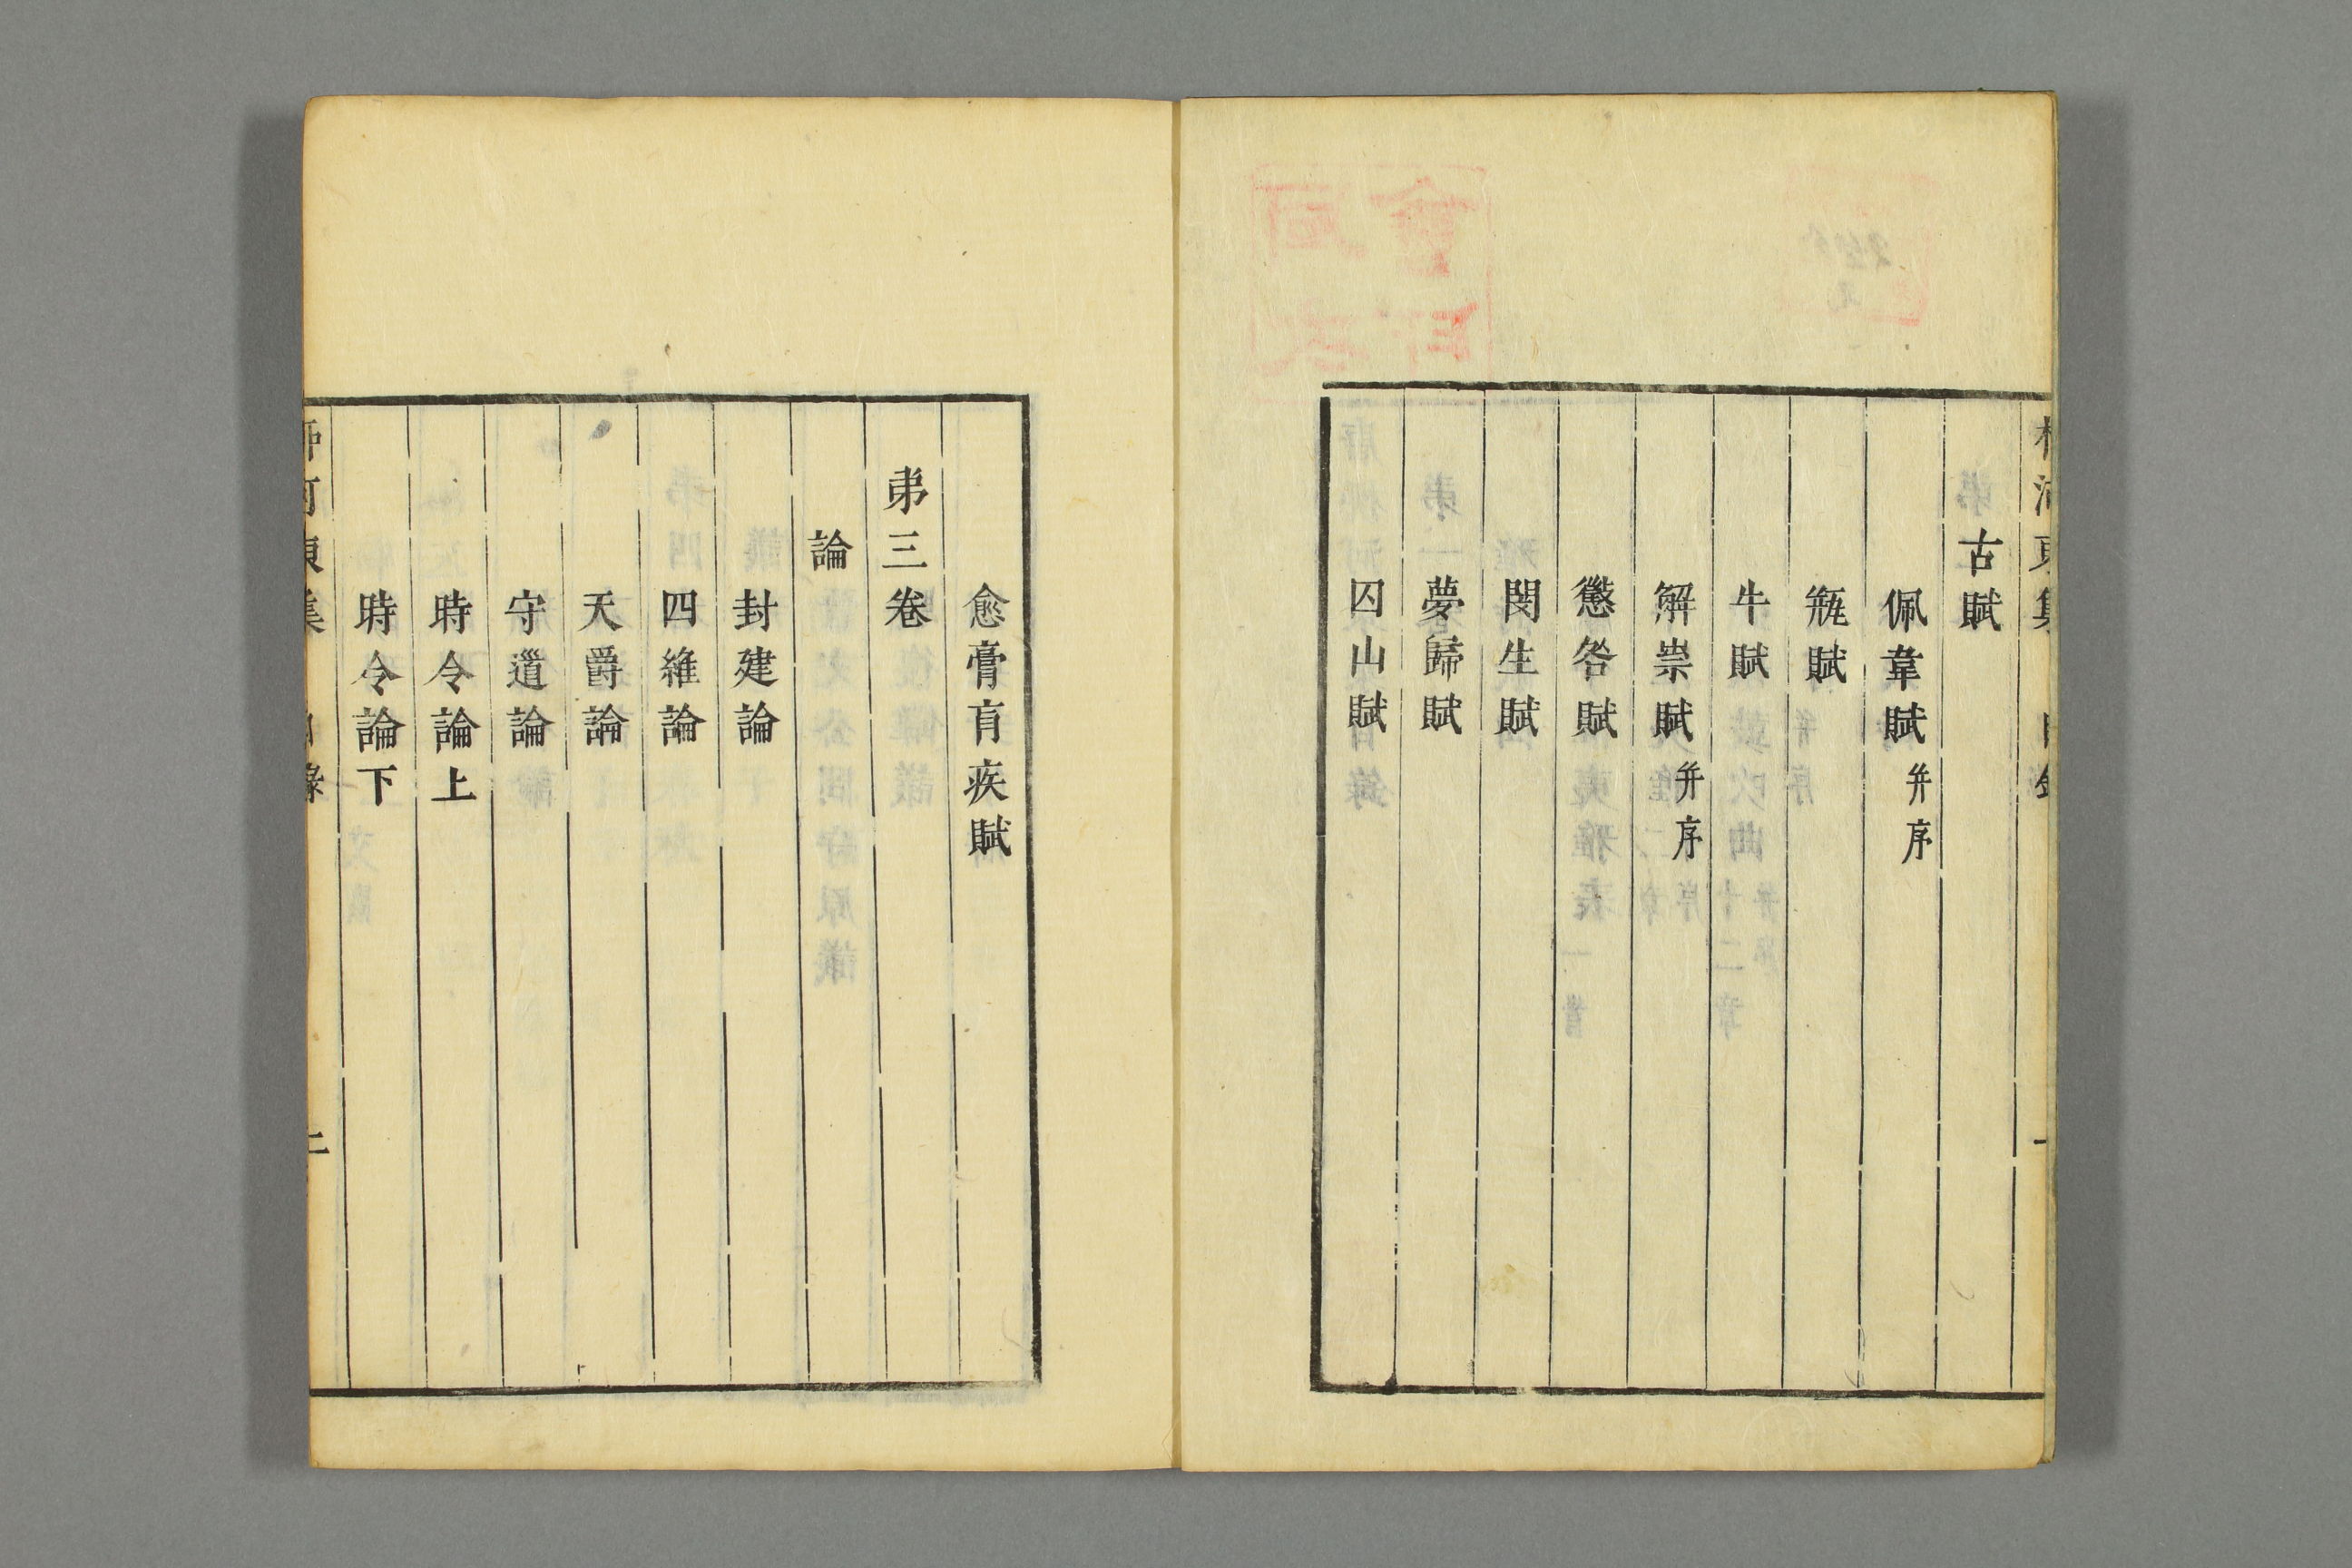 古賦
佩韋賦 并序
瓶賦
牛賦
解祟賦 并序
懲咎賦
閔生賦
夢歸賦
囚山賦
愈膏肓疾賦
弟三卷
論
封建論
四維論
天爵論
守道論
時令論上
時令論下